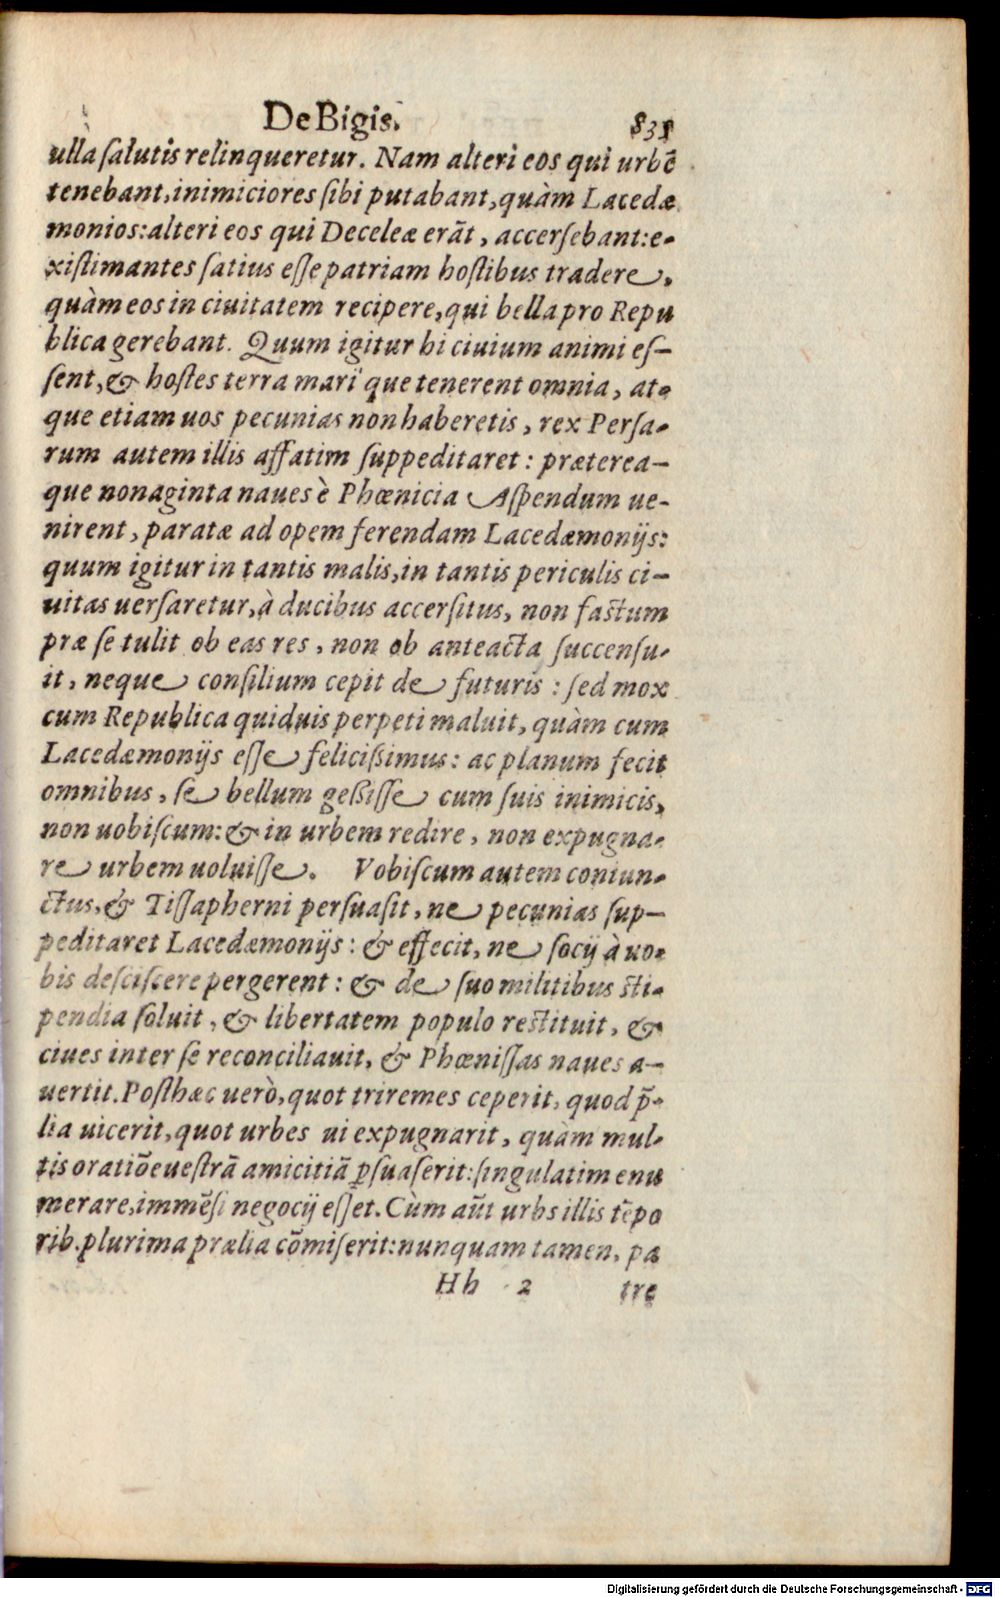 De Bigis. 831
ulla ſalutis relinqueretur. Nam alteri eos qui urbē
tenebant, inimiciores ſibi putabant, quàm Lacedæ
monios: alteri eos qui Deceleæ erāt, accerſebant: e-
xiſtimantes ſatius eſſe patriam hoſtibus tradere,
quàm eos in ciuitatem recipere, qui bella pro Repu
blica gerebant. Quum igitur hi ciuium animi eſ-
ſent, & hoſtes terra mari que tenerent omnia, at-
que etiam uos pecunias non haberetis, rex Perſa-
rum autem illis affatim ſuppeditaret: præterea-
que nonaginta naues è Phœnicia Aſpendum ue-
nirent, paratæ ad opem ferendam Lacedæmonijs:
quum igitur in tantis malis, in tantis periculis ci-
uitas uerſaretur, à ducibus accerſitus, non faſtum
præ ſe tulit ob eas res, non ob anteacta ſuccenſu-
it, neque conſilium cepit de futuris: ſed mox
cum Republica quiduis perpeti maluit, quàm cum
Lacedæmonijs eſſe feliciſsimus: ac planum fecit
omnibus, ſe bellum geßiſſe cum ſuis inimicis,
non uobiſcum: & in urbem redire, non expugna-
re urbem uoluiſſe. Vobiſcum autem coniun-
ctus, & Tiſſapherni perſuaſit, ne pecunias ſup-
peditaret Lacedæmonijs: & effecit, ne ſocij à uo-
bis deſciſcere pergerent: & de ſuo militibus ſti-
pendia ſoluit, & libertatem populo reſtituit, &
ciues inter ſe reconciliauit, & Phœniſſas naues a-
uertit. Poſthæc uerò, quot triremes ceperit, quod p̄-
lia uicerit, quot urbes ui expugnarit, quàm mul-
tis oratiōe ueſtrā amicitiā ꝑſuaſerit: ſingulatim enu
merare, immēſi negocij eſſet. Cùm aūt urbs illis tēpo
rib. plurima prælia cōmiſerit: nunquam tamen, pa
Hh 2 tre
Digitalisierung gefördert durch die Deutsche Forschungsgemeinschaft - DFG